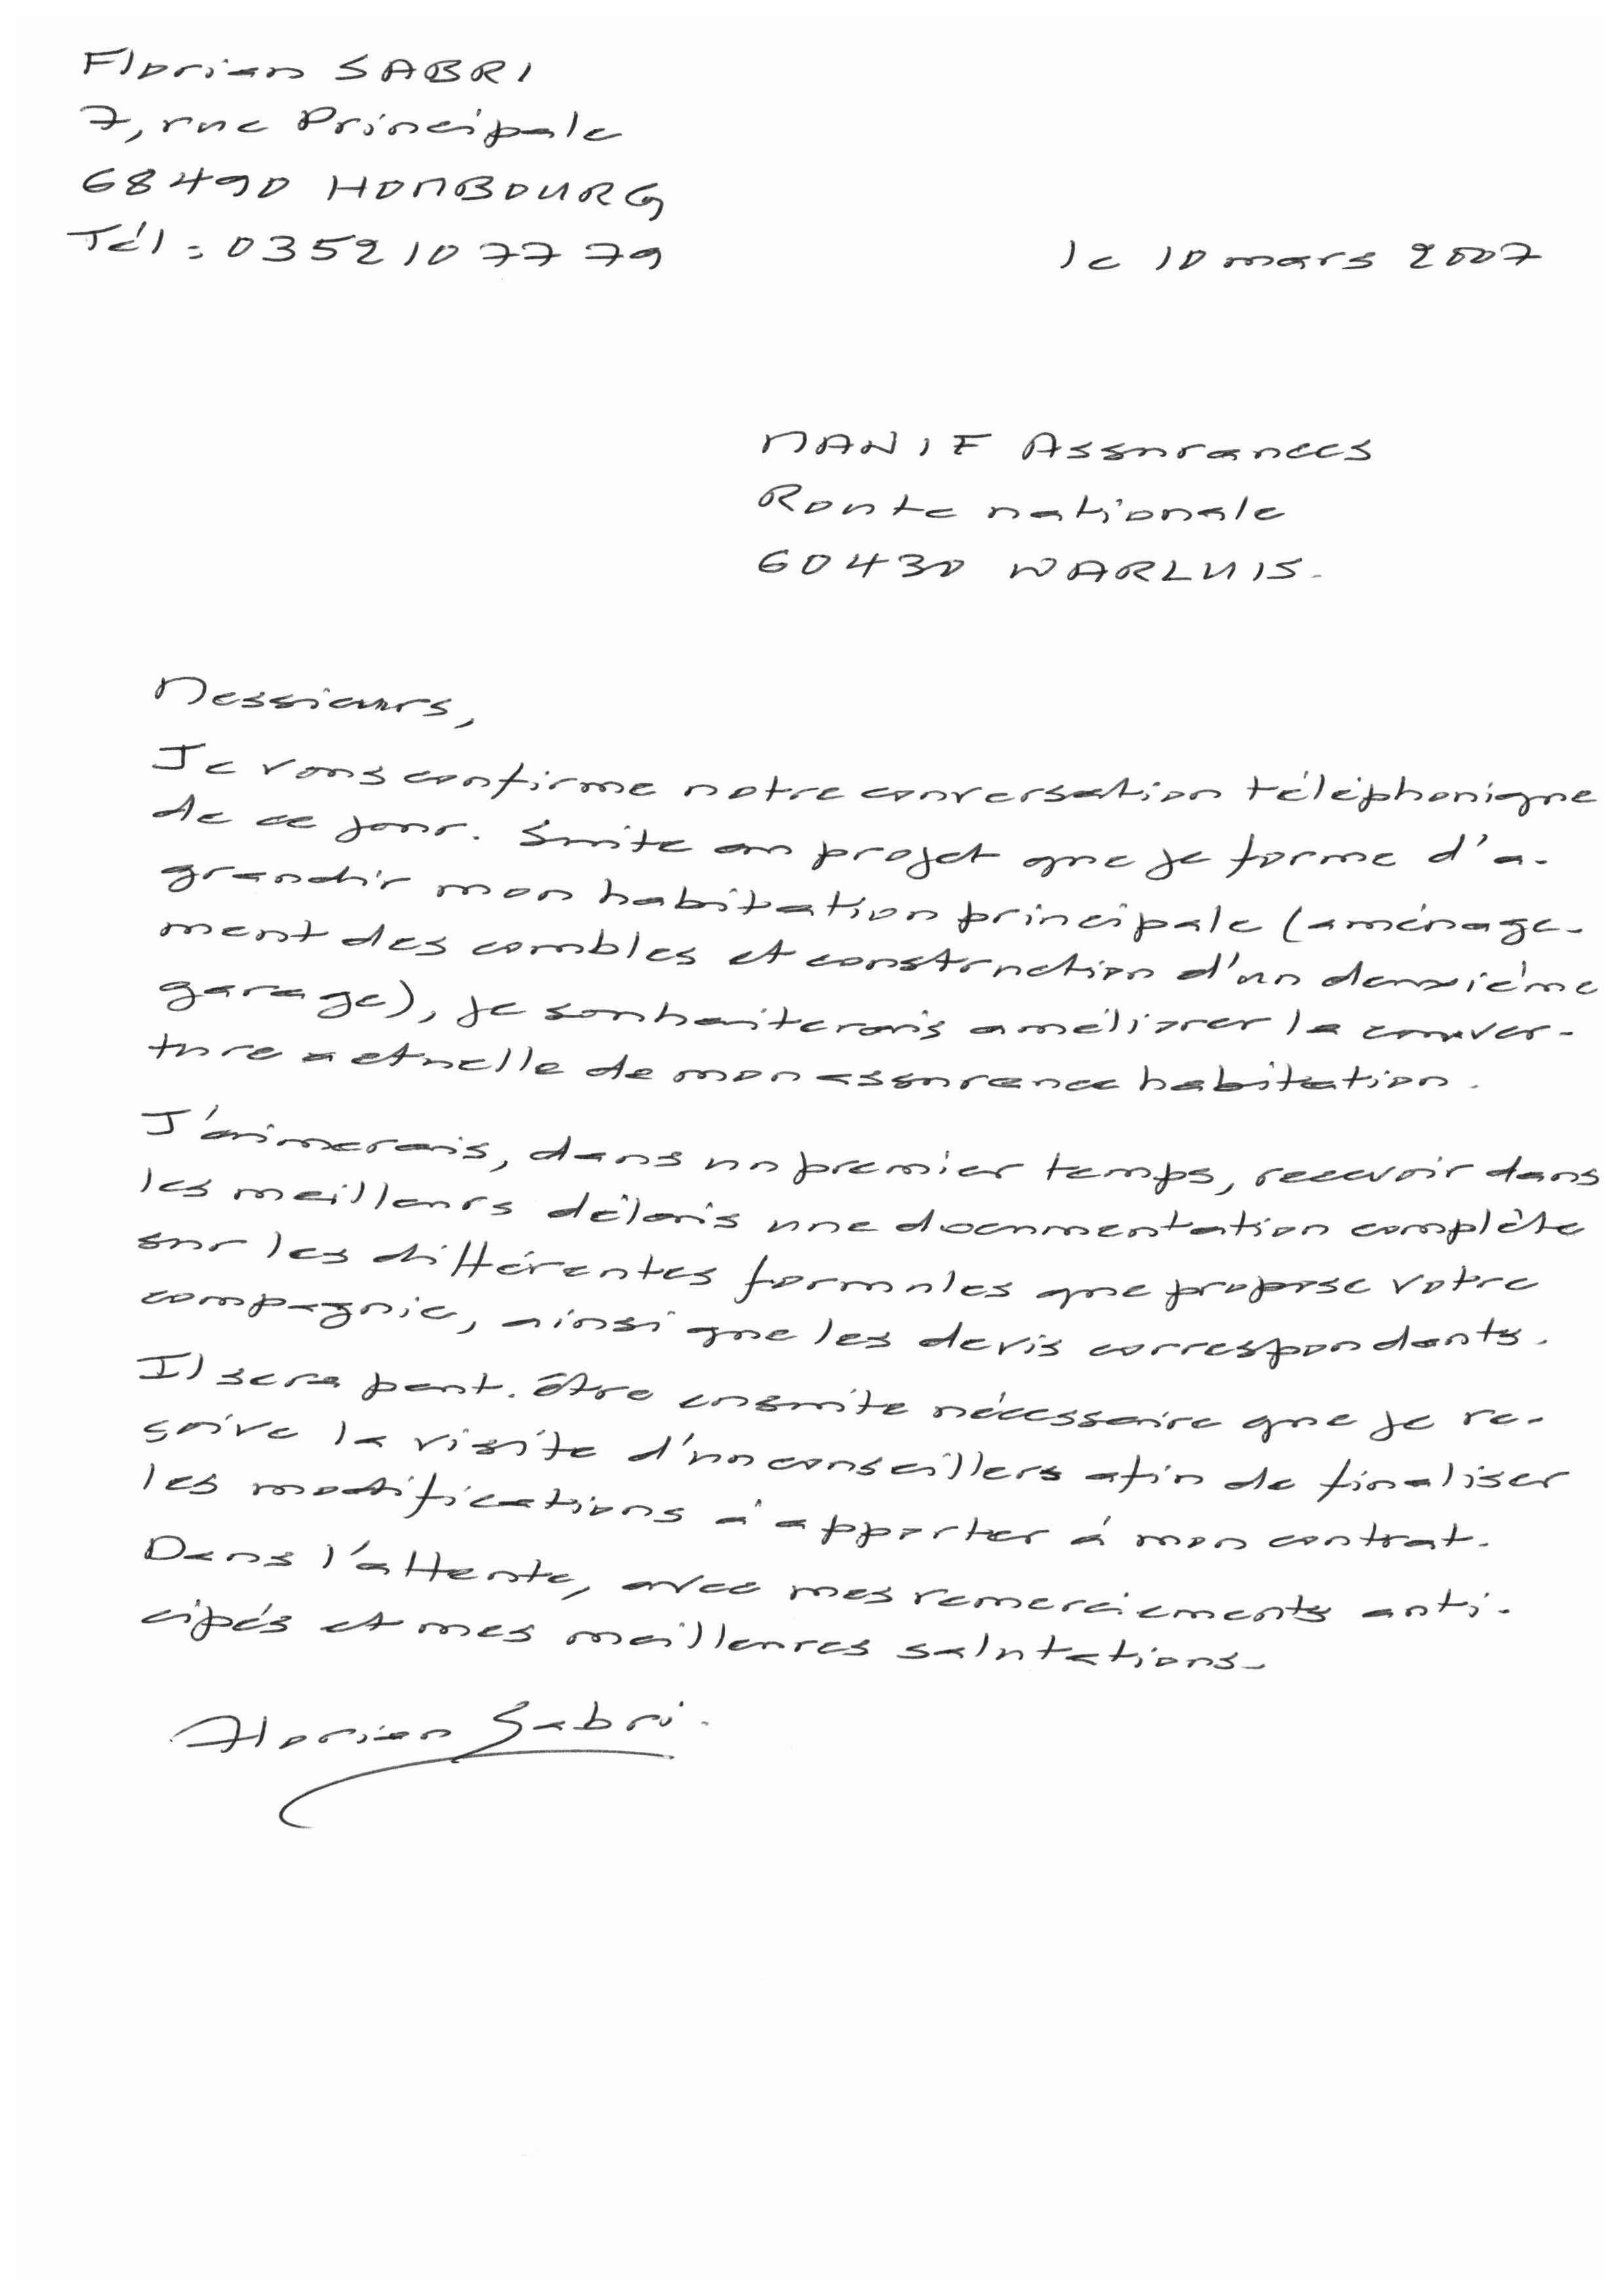 Florian SABRI
7, rue Principale
68490 HOMBOURG
Tél : 03 52 10 77 79
le 10 mars 2007
MANIF Assurances
Route nationale
60430 WARLUIS.
Messieurs,
Je vous confirme notre conversation téléphonique
de ce jour. Suite au projet que je forme d'a-
grandir mon habitation principale (aménage-
ment des combles et construction d'un deuxième
garage), je souhaiterais améliorer la couver-
ture actuelle de mon assurance habitation.
J'aimerais, dans un premier temps, recevoir dans
les meilleurs délais une documentation complète
sur les différentes formules que propose votre
compagnie, ainsi que les devis correspondants.
Il sera peut-être ensuite nécessaire que je re-
çoive la visite d'un conseillers afin de finaliser
les modifications à apporter à mon contrat.
Dans l'attente, avec mes remerciements anti-
cipés et mes meilleures salutations.
Florian Sabri.